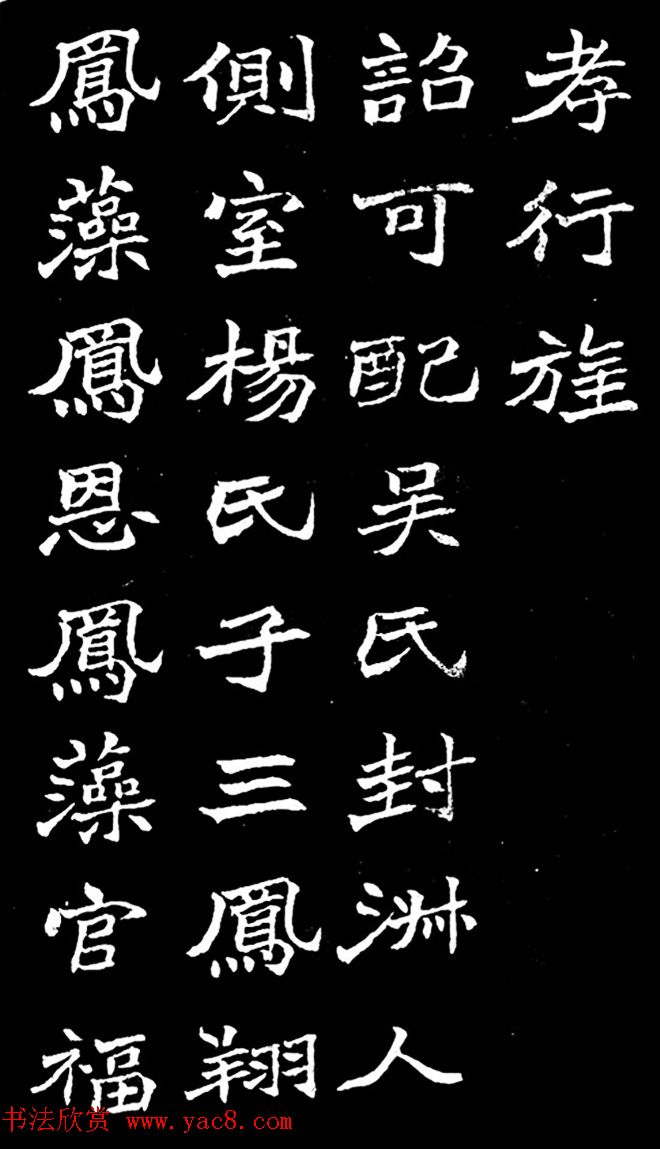 孝行旌
詔可配吳氏封淋人
側室楊氏子三鳳翔
鳳藻鳳恩鳳藻官福
书法欣赏 www.yac8.com